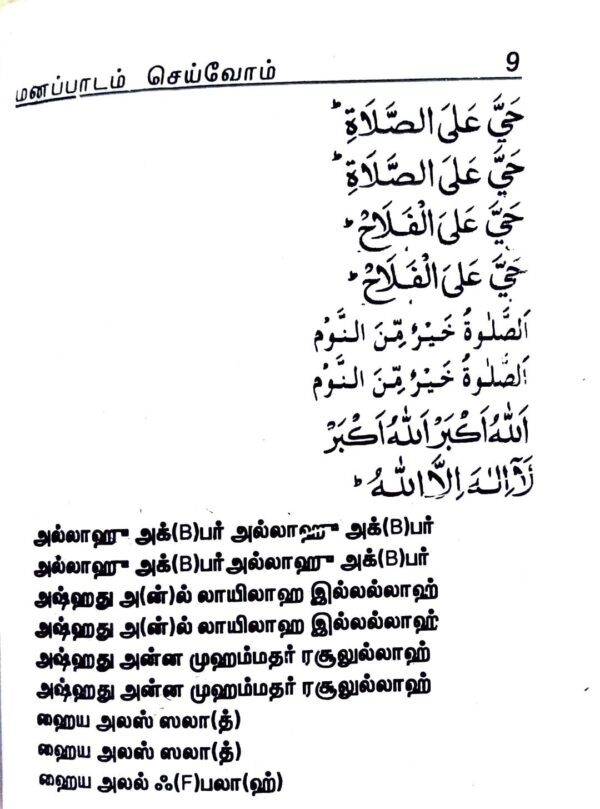 மனப்பாடம் செய்வோம் 9
حَيَّ عَلَى الصَّلَاةِ ؕ
حَيَّ عَلَى الصَّلَاةِ ؕ
حَيَّ عَلَى الْفَلَاحْ ؕ
حَيَّ عَلَى الْفَلَاحْ ؕ
اَلصَّلٰوةُ خَيْرٌ مِّنَ النَّوْم
اَلصَّلٰوةُ خَيْرٌ مِّنَ النَّوْم
اَللّٰهُ اَكْبَرْ اَللّٰهُ اَكْبَرْ
لَآ اِلٰهَ اِلَّا اللّٰهُ ؕ
அல்லாஹு அக்(B)பர் அல்லாஹு அக்(B)பர்
அல்லாஹு அக்(B)பர் அல்லாஹு அக்(B)பர்
அஷ்ஹது அ(ன்)ல் லாயிலாஹ இல்லல்லாஹ்
அஷ்ஹது அ(ன்)ல் லாயிலாஹ இல்லல்லாஹ்
அஷ்ஹது அன்ன முஹம்மதர் ரசூலுல்லாஹ்
அஷ்ஹது அன்ன முஹம்மதர் ரசூலுல்லாஹ்
ஹைய அலஸ் ஸலா(த்)
ஹைய அலஸ் ஸலா(த்)
ஹைய அலல் ஃ(F)பலா(ஹ்)